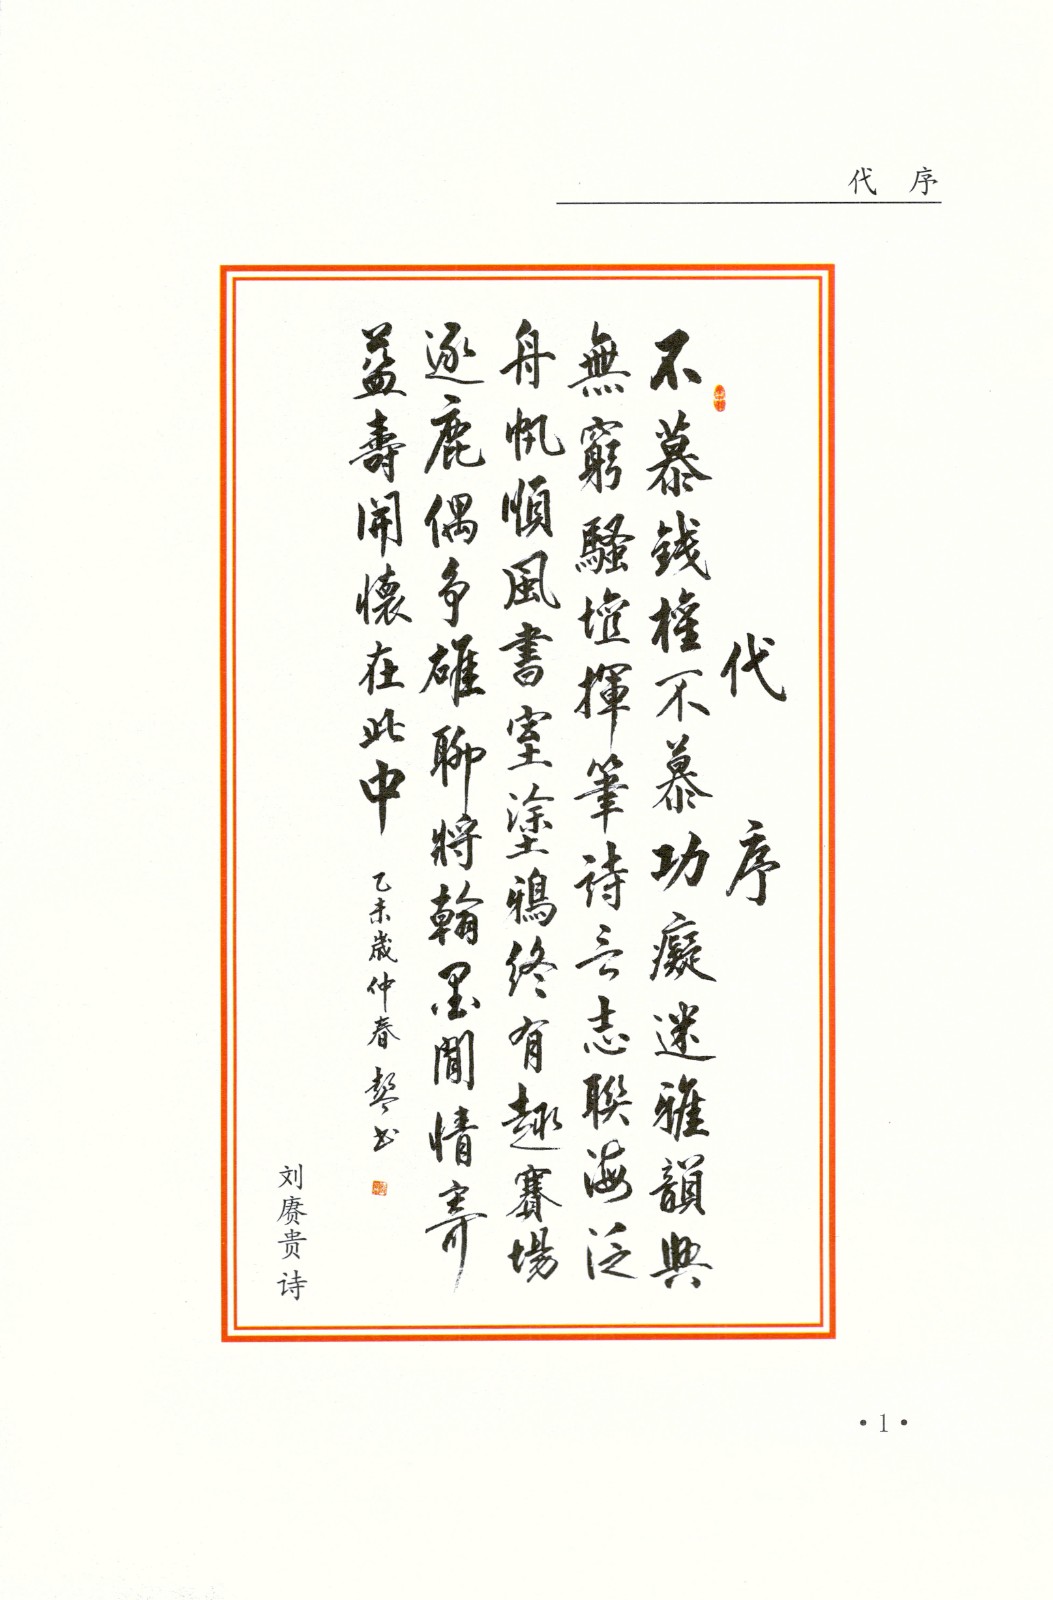 代 序
代序
不慕錢權不慕功癡迷雅韻興
無窮騷壇揮筆詩言志聯海泛
舟帆順風書室塗鴉終有趣賽場
逐鹿偶争雄聊將翰墨閒情寄
益壽開懷在此中
乙未歲仲春 书
刘赓贵诗
·1·